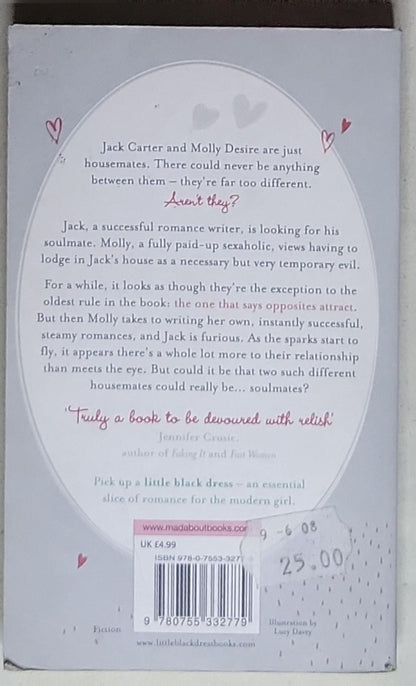 Jack Carter and Molly Desire are just
housemates. There could never be anything
between them – they're far too different.
Aren't they?
Jack, a successful romance writer, is looking for his
soulmate. Molly, a fully paid-up sexaholic, views having to
lodge in Jack's house as a necessary but very temporary evil.
For a while, it looks as though they're the exception to the
oldest rule in the book: the one that says opposites attract.
But then Molly takes to writing her own, instantly successful,
steamy romances, and Jack is furious. As the sparks start to
fly, it appears there's a whole lot more to their relationship
than meets the eye. But could it be that two such different
housemates could really be... soulmates?
'Truly a book to be devoured with relish'
Jennifer Crusie,
author of Faking It and Fast Women
Pick up a little black dress – an essential
slice of romance for the modern girl.
www.madaboutbooks.com
9 -6 08
25.00
UK £4.99
ISBN 978-0-7553-327
9 780755 332779
Fiction
Illustration by
Lucy Davey
www.littleblackdressbooks.com